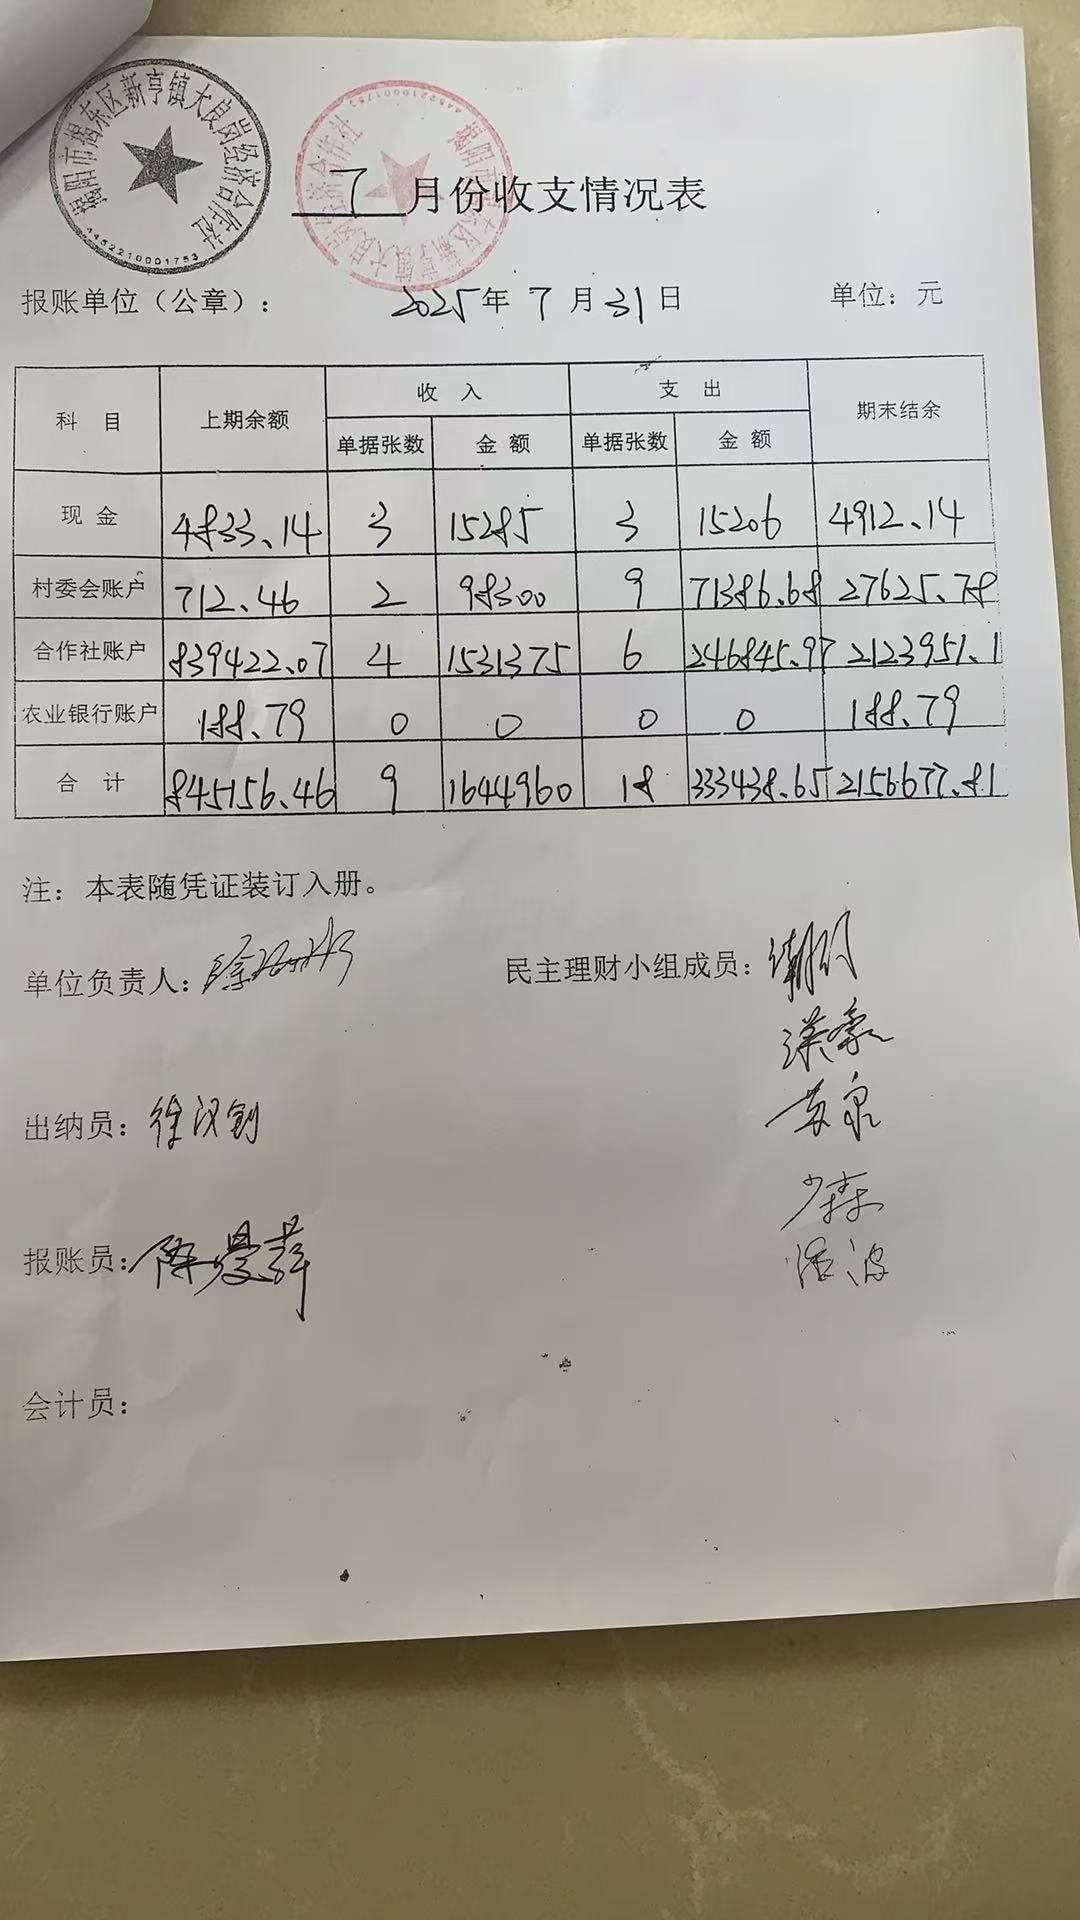 揭阳市揭东区新亨镇大良岗经济合作社
4452210001753
揭阳市揭东区新亨镇大良岗经济合作社
4452210001753
7 月份收支情况表
报账单位（公章）： 2025年 7 月 31 日 单位：元
科 目 上期余额 收 入 支 出 期末结余
单据张数 金 额 单据张数 金 额
现 金 4833.14 3 15285 3 15206 4912.14
村委会账户 712.46 2 98300 9 71386.68 27625.78
合作社账户 839422.07 4 1531375 6 246845.97 2123951.1
农业银行账户 188.79 0 0 0 0 188.79
合 计 845156.46 9 1644960 18 333438.65 2156677.81
注：本表随凭证装订入册。
单位负责人： 民主理财小组成员：
汉豪
出纳员：徐汉钊
少森
报账员：陈曼萍
浩波
会计员：